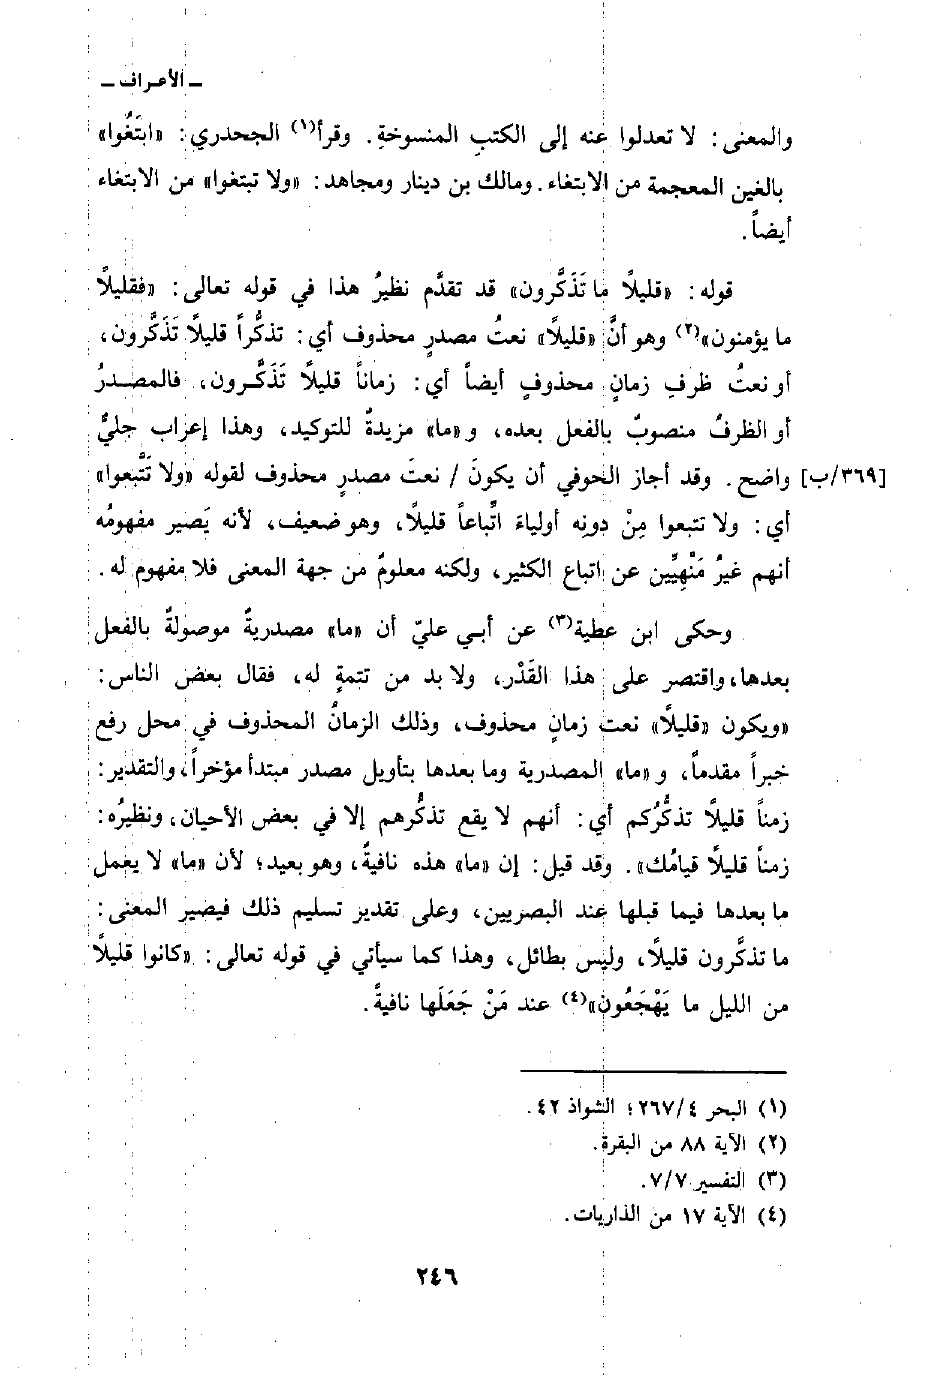 ـ الأعراف ـ
والمعنى: لا تعدلوا عنه إلى الكتبِ المنسوخةِ. وقرأ(١) الجحدري: «ابتَغُوا»
بالغين المعجمة من الابتغاء. ومالك بن دينار ومجاهد: «ولا تبتغوا» من الابتغاء
أيضاً.
قوله: «قليلًا ما تَذَكَّرون» قد تقدَّم نظيرُ هذا في قوله تعالى: «فقليلًا
ما يؤمنون»(٢) وهو أنَّ «قليلًا» نعتُ مصدرٍ محذوف أي: تذكُّراً قليلًا تَذَكَّرون،
أو نعتُ ظرفِ زمانٍ محذوفٍ أيضاً أي: زماناً قليلًا تَذَكَّرون، فالمصدرُ
أو الظرفُ منصوبٌ بالفعل بعده، و «ما» مزيدةٌ للتوكيد، وهذا إعراب جليٌّ
[٣٦٩/ب] واضح. وقد أجاز الحوفي أن يكونَ / نعتَ مصدرٍ محذوف لقوله «ولا تَتَّبعوا»
أي: ولا تتبعوا مِنْ دونِه أولياءَ اتِّباعاً قليلًا، وهو ضعيف، لأنه يَصير مفهومُه
أنهم غيرُ مَنْهِيِّين عن اتباع الكثير، ولكنه معلومٌ من جهة المعنى فلا مفهوم له.
وحكى ابن عطية(٣) عن أبي عليّ أن «ما» مصدريةٌ موصولةٌ بالفعل
بعدها، واقتصر على هذا القَدْر، ولا بد من تتمةٍ له، فقال بعض الناس:
«ويكون «قليلًا» نعت زمانٍ محذوف، وذلك الزمانُ المحذوف في محل رفع
خبراً مقدماً، و «ما» المصدرية وما بعدها بتأويل مصدر مبتدأ مؤخراً، والتقدير:
زمناً قليلًا تذكُّرُكم أي: أنهم لا يقع تذكُّرهم إلا في بعض الأحيان، ونظيرُه:
زمناً قليلًا قيامُك». وقد قيل: إن «ما» هذه نافيةٌ، وهو بعيد؛ لأن «ما» لا يعمل
ما بعدها فيما قبلها عند البصريين، وعلى تقدير تسليم ذلك فيصير المعنى:
ما تذكَّرون قليلًا، وليس بطائل، وهذا كما سيأتي في قوله تعالى: «كانوا قليلًا
من الليل ما يَهْجَعُون»(٤) عند مَنْ جَعَلَها نافيةً.
(١) البحر ٢٦٧/٤؛ الشواذ ٤٢.
(٢) الآية ٨٨ من البقرة.
(٣) التفسير ٧/٧.
(٤) الآية ١٧ من الذاريات.
٢٤٦